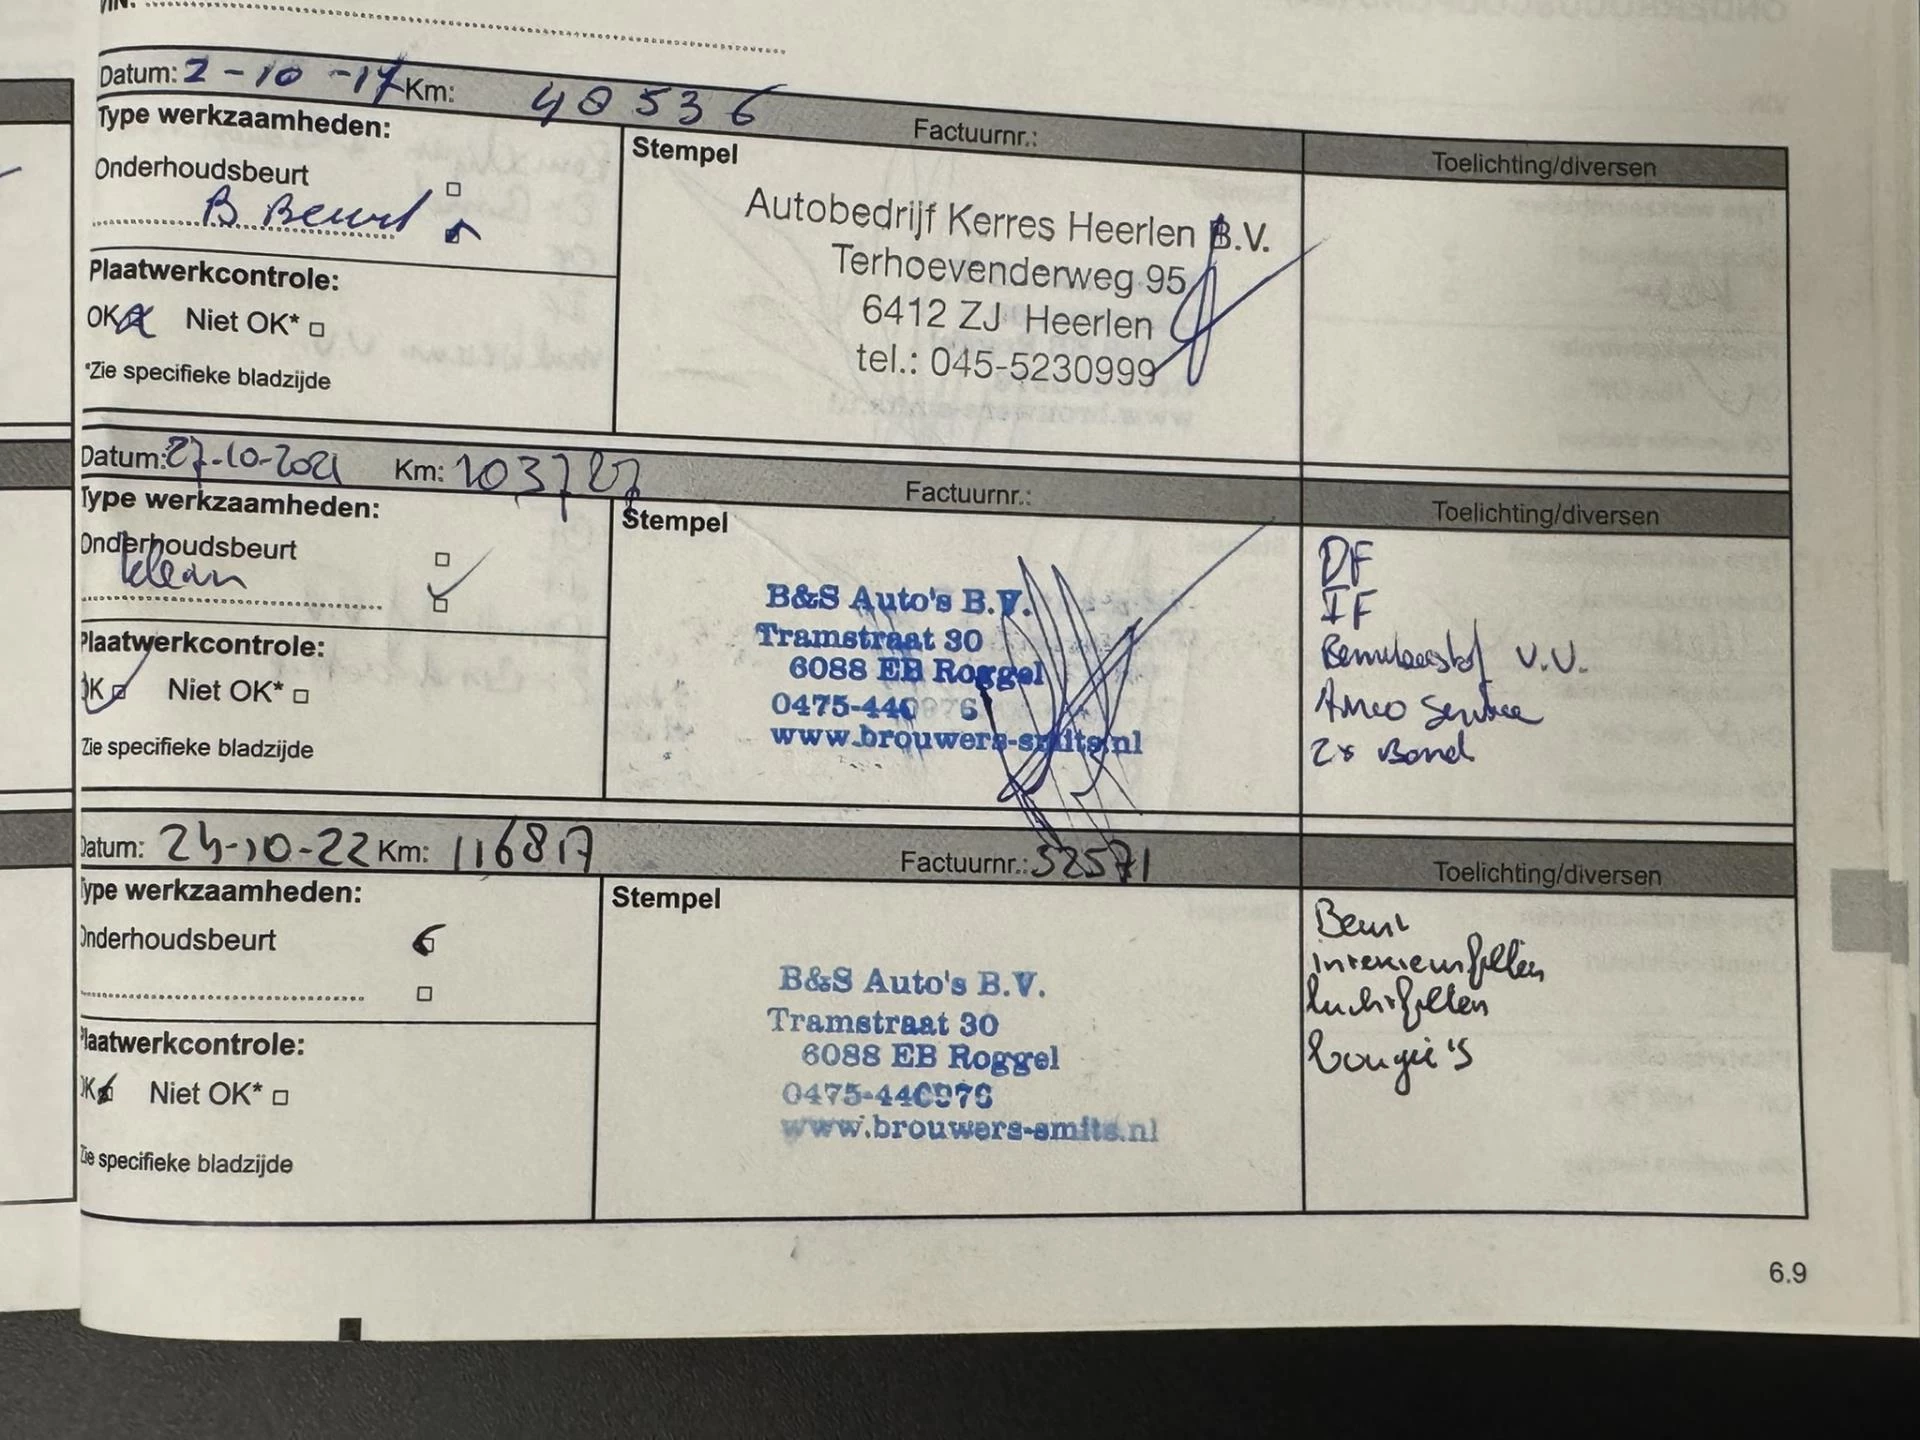 VIN:
Datum: 2-10-17 Km: 40536 Factuurnr.:
Toelichting/diversen
Type werkzaamheden:
Stempel
Onderhoudsbeurt
B Beurt
Plaatwerkcontrole:
OK Niet OK*
*Zie specifieke bladzijde
Autobedrijf Kerres Heerlen B.V.
Terhoevenderweg 95
6412 ZJ Heerlen
tel.: 045-5230999
Datum: 27-10-2021 Km: 103727 Factuurnr.:
Toelichting/diversen
Type werkzaamheden:
Stempel
Onderhoudsbeurt
klein
Plaatwerkcontrole:
OK Niet OK*
Zie specifieke bladzijde
B&S Auto's B.V.
Tramstraat 30
6088 EB Roggel
0475-440976
www.brouwers-smits.nl
DF
IF
Remvloeistof V.V.
Airco Service
2x Band
Datum: 24-10-22 Km: 116817 Factuurnr.: 32571
Toelichting/diversen
Type werkzaamheden:
Stempel
Onderhoudsbeurt
Plaatwerkcontrole:
OK Niet OK*
Zie specifieke bladzijde
B&S Auto's B.V.
Tramstraat 30
6088 EB Roggel
0475-440976
www.brouwers-smits.nl
Beurt
interieurfilter
luchtfilter
bougie's
6.9